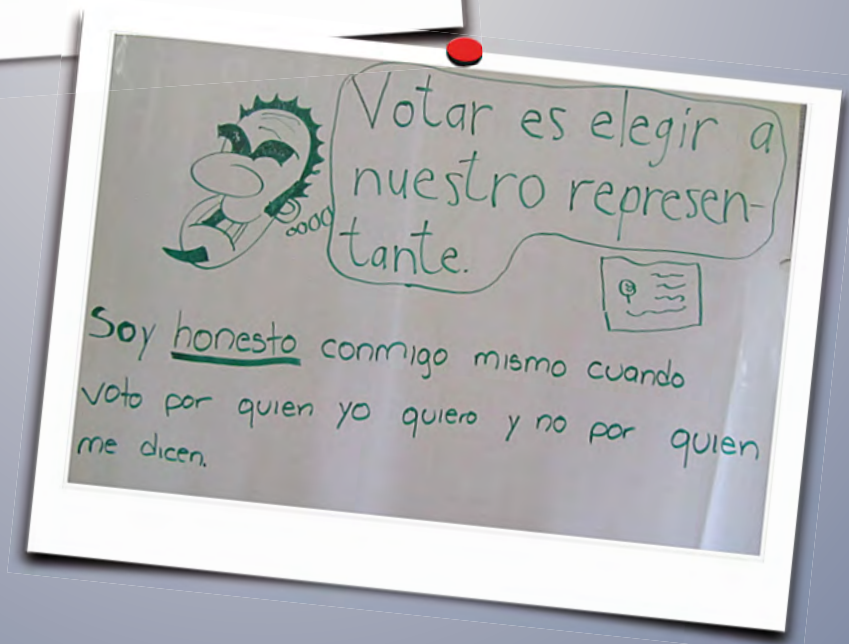 Votar es elegir a
nuestro represen-
tante.
Soy honesto conmigo mismo cuando
voto por quien yo quiero y no por quien
me dicen.